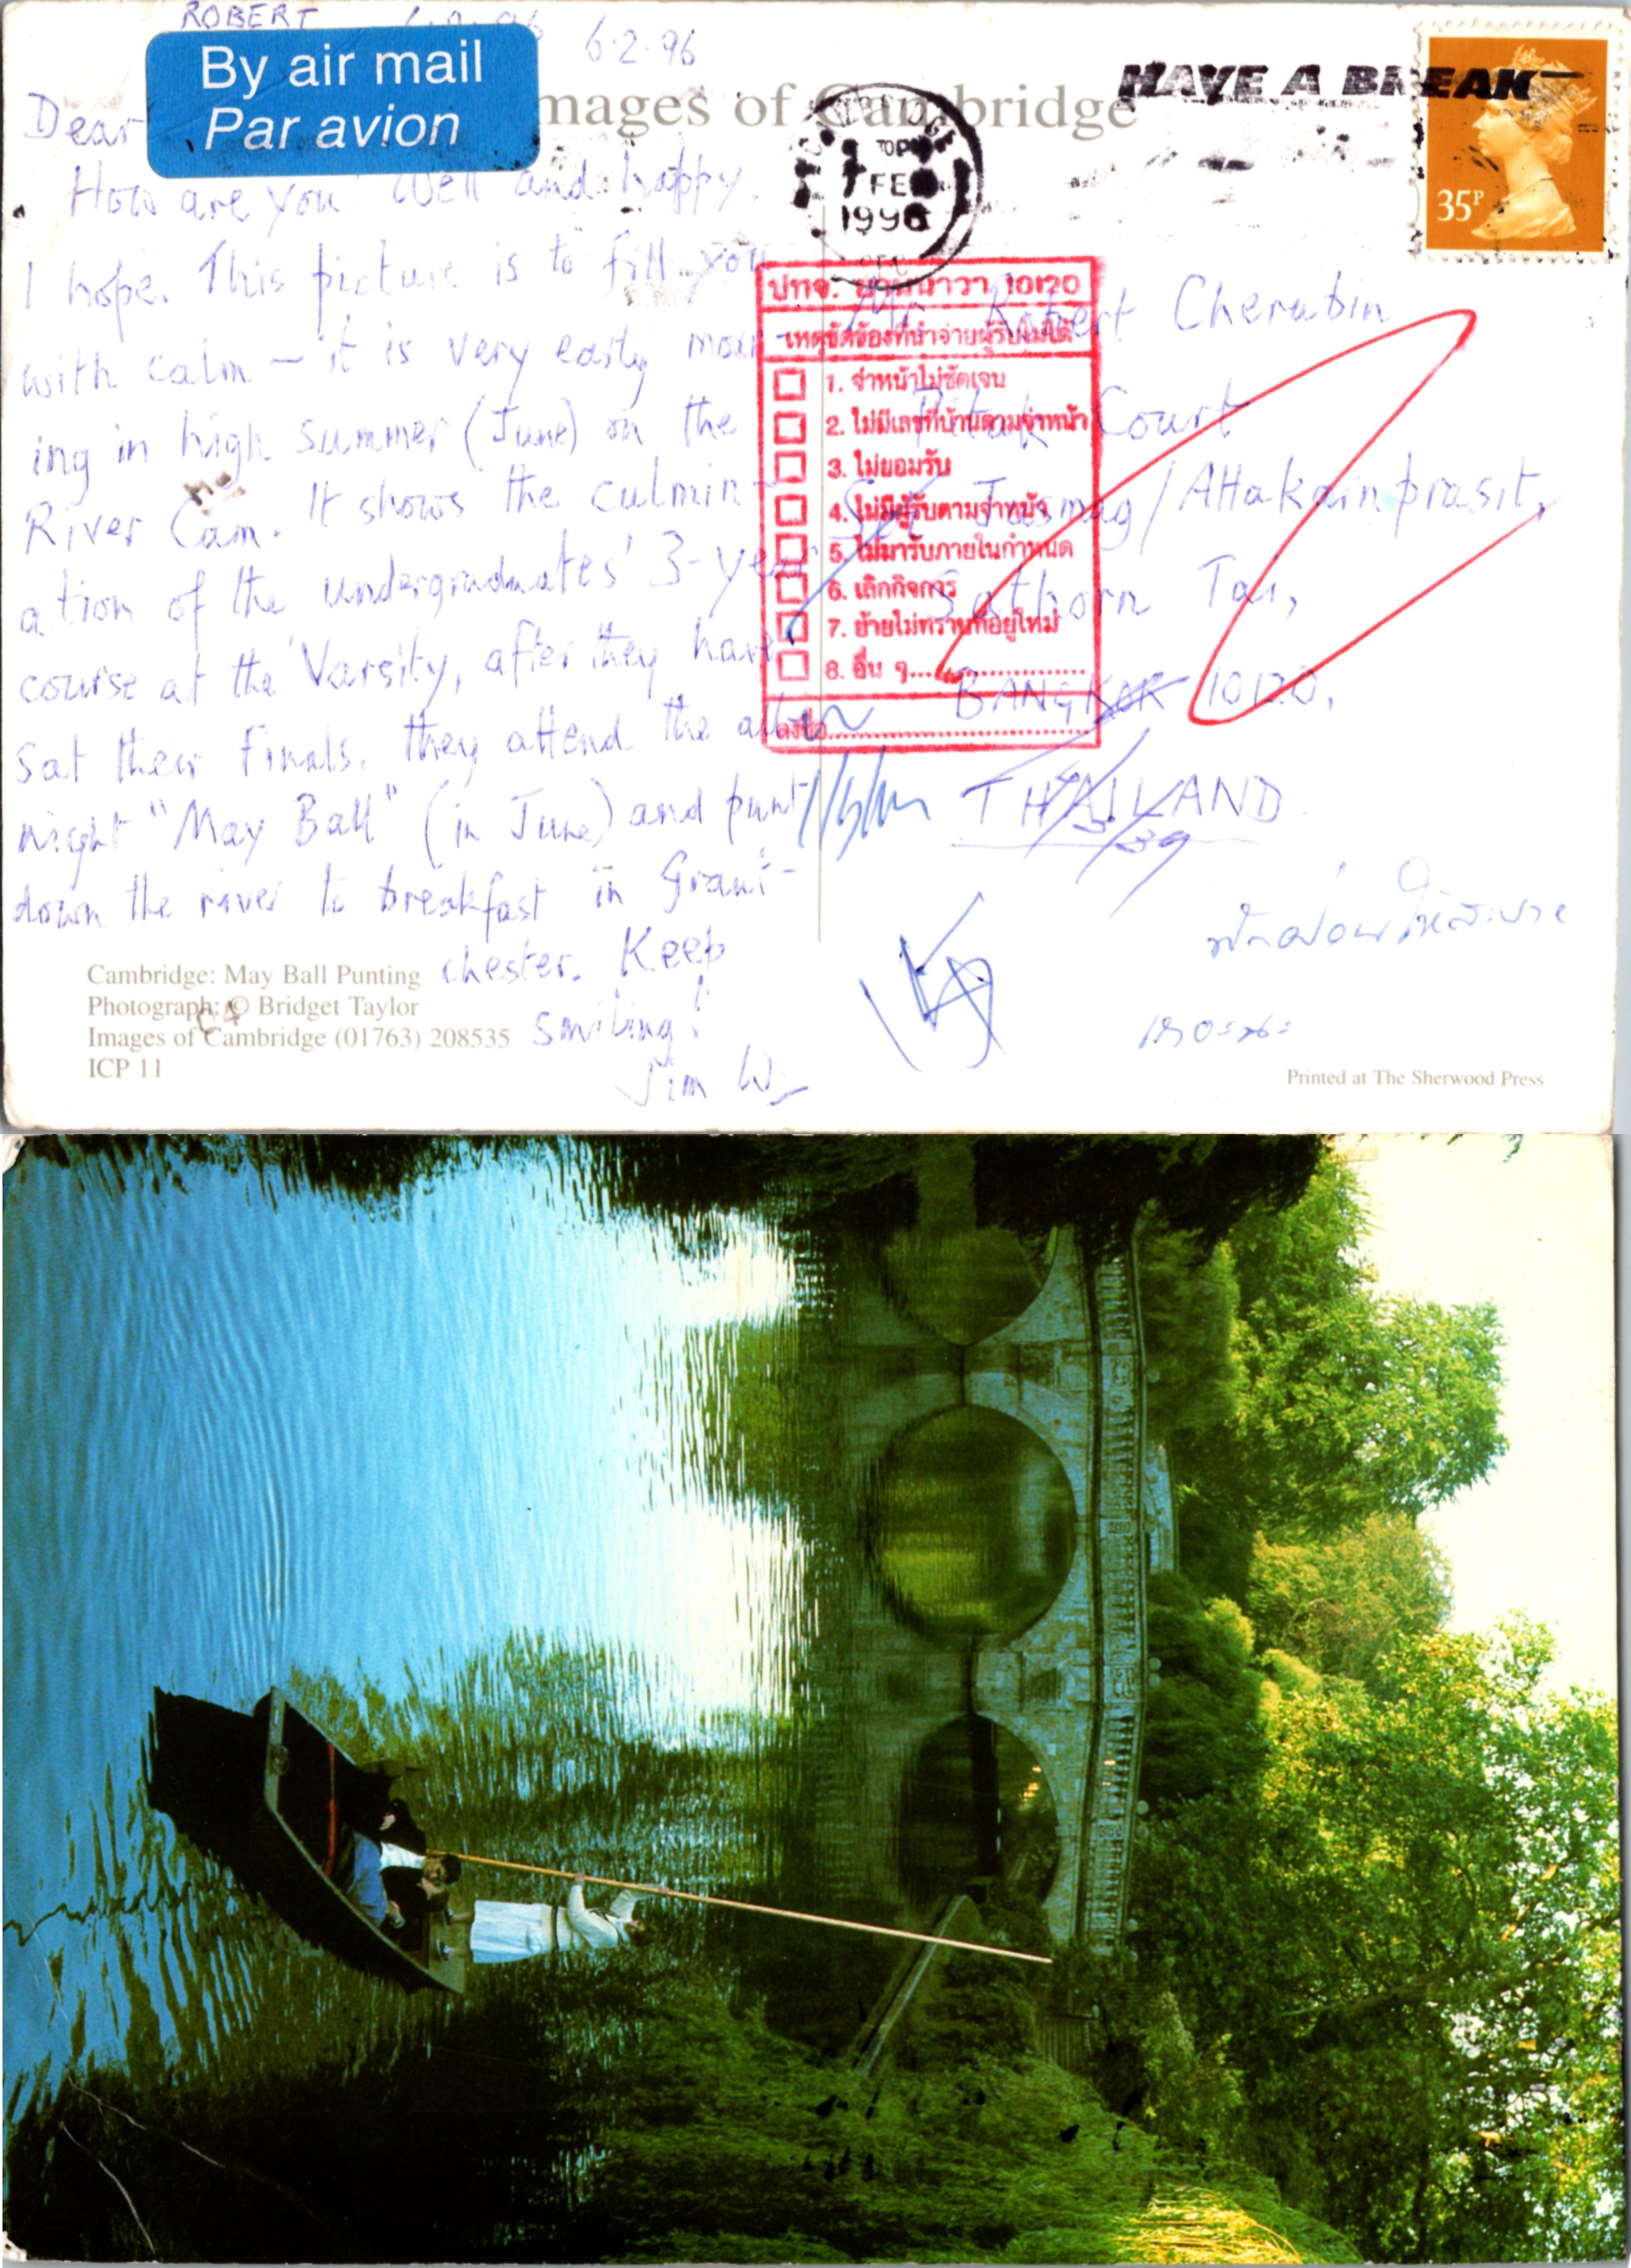 ROBERT 6.2.96
By air mail
Par avion
Images of Cambridge
HAVE A BREAK
35P
FE
1996
Dear
How are you? Well and happy,
I hope. This picture is to fill you
with calm – it is very early morn-
ing in high summer (June) on the
River Cam. It shows the culmin-
ation of the undergraduates' 3-year
course at the Varsity, after they have
sat their Finals. They attend the all-
night "May Ball" (in June) and punt
down the river to breakfast in Grant-
chester. Keep
smiling!
Jim W.
Mr Robert Cherubin
Pitak Court
Soi Jusmag/Attakarnprasit,
Sathorn Tai,
BANGKOK 10120,
THAILAND
ปทจ. ยานนาวา 10120
เหตุขัดข้องที่นำจ่ายผู้รับไม่ได้
1. จ่าหน้าไม่ชัดเจน
2. ไม่มีเลขที่บ้านตามจ่าหน้า
3. ไม่ยอมรับ
4. ไม่มีผู้รับตามจ่าหน้า
5. ไม่มารับภายในกำหนด
6. เลิกกิจการ
7. ย้ายไม่ทราบที่อยู่ใหม่
8. อื่น ๆ
ลงชื่อ
Cambridge: May Ball Punting
Photograph: © Bridget Taylor
Images of Cambridge (01763) 208535
ICP 11
Printed at The Sherwood Press